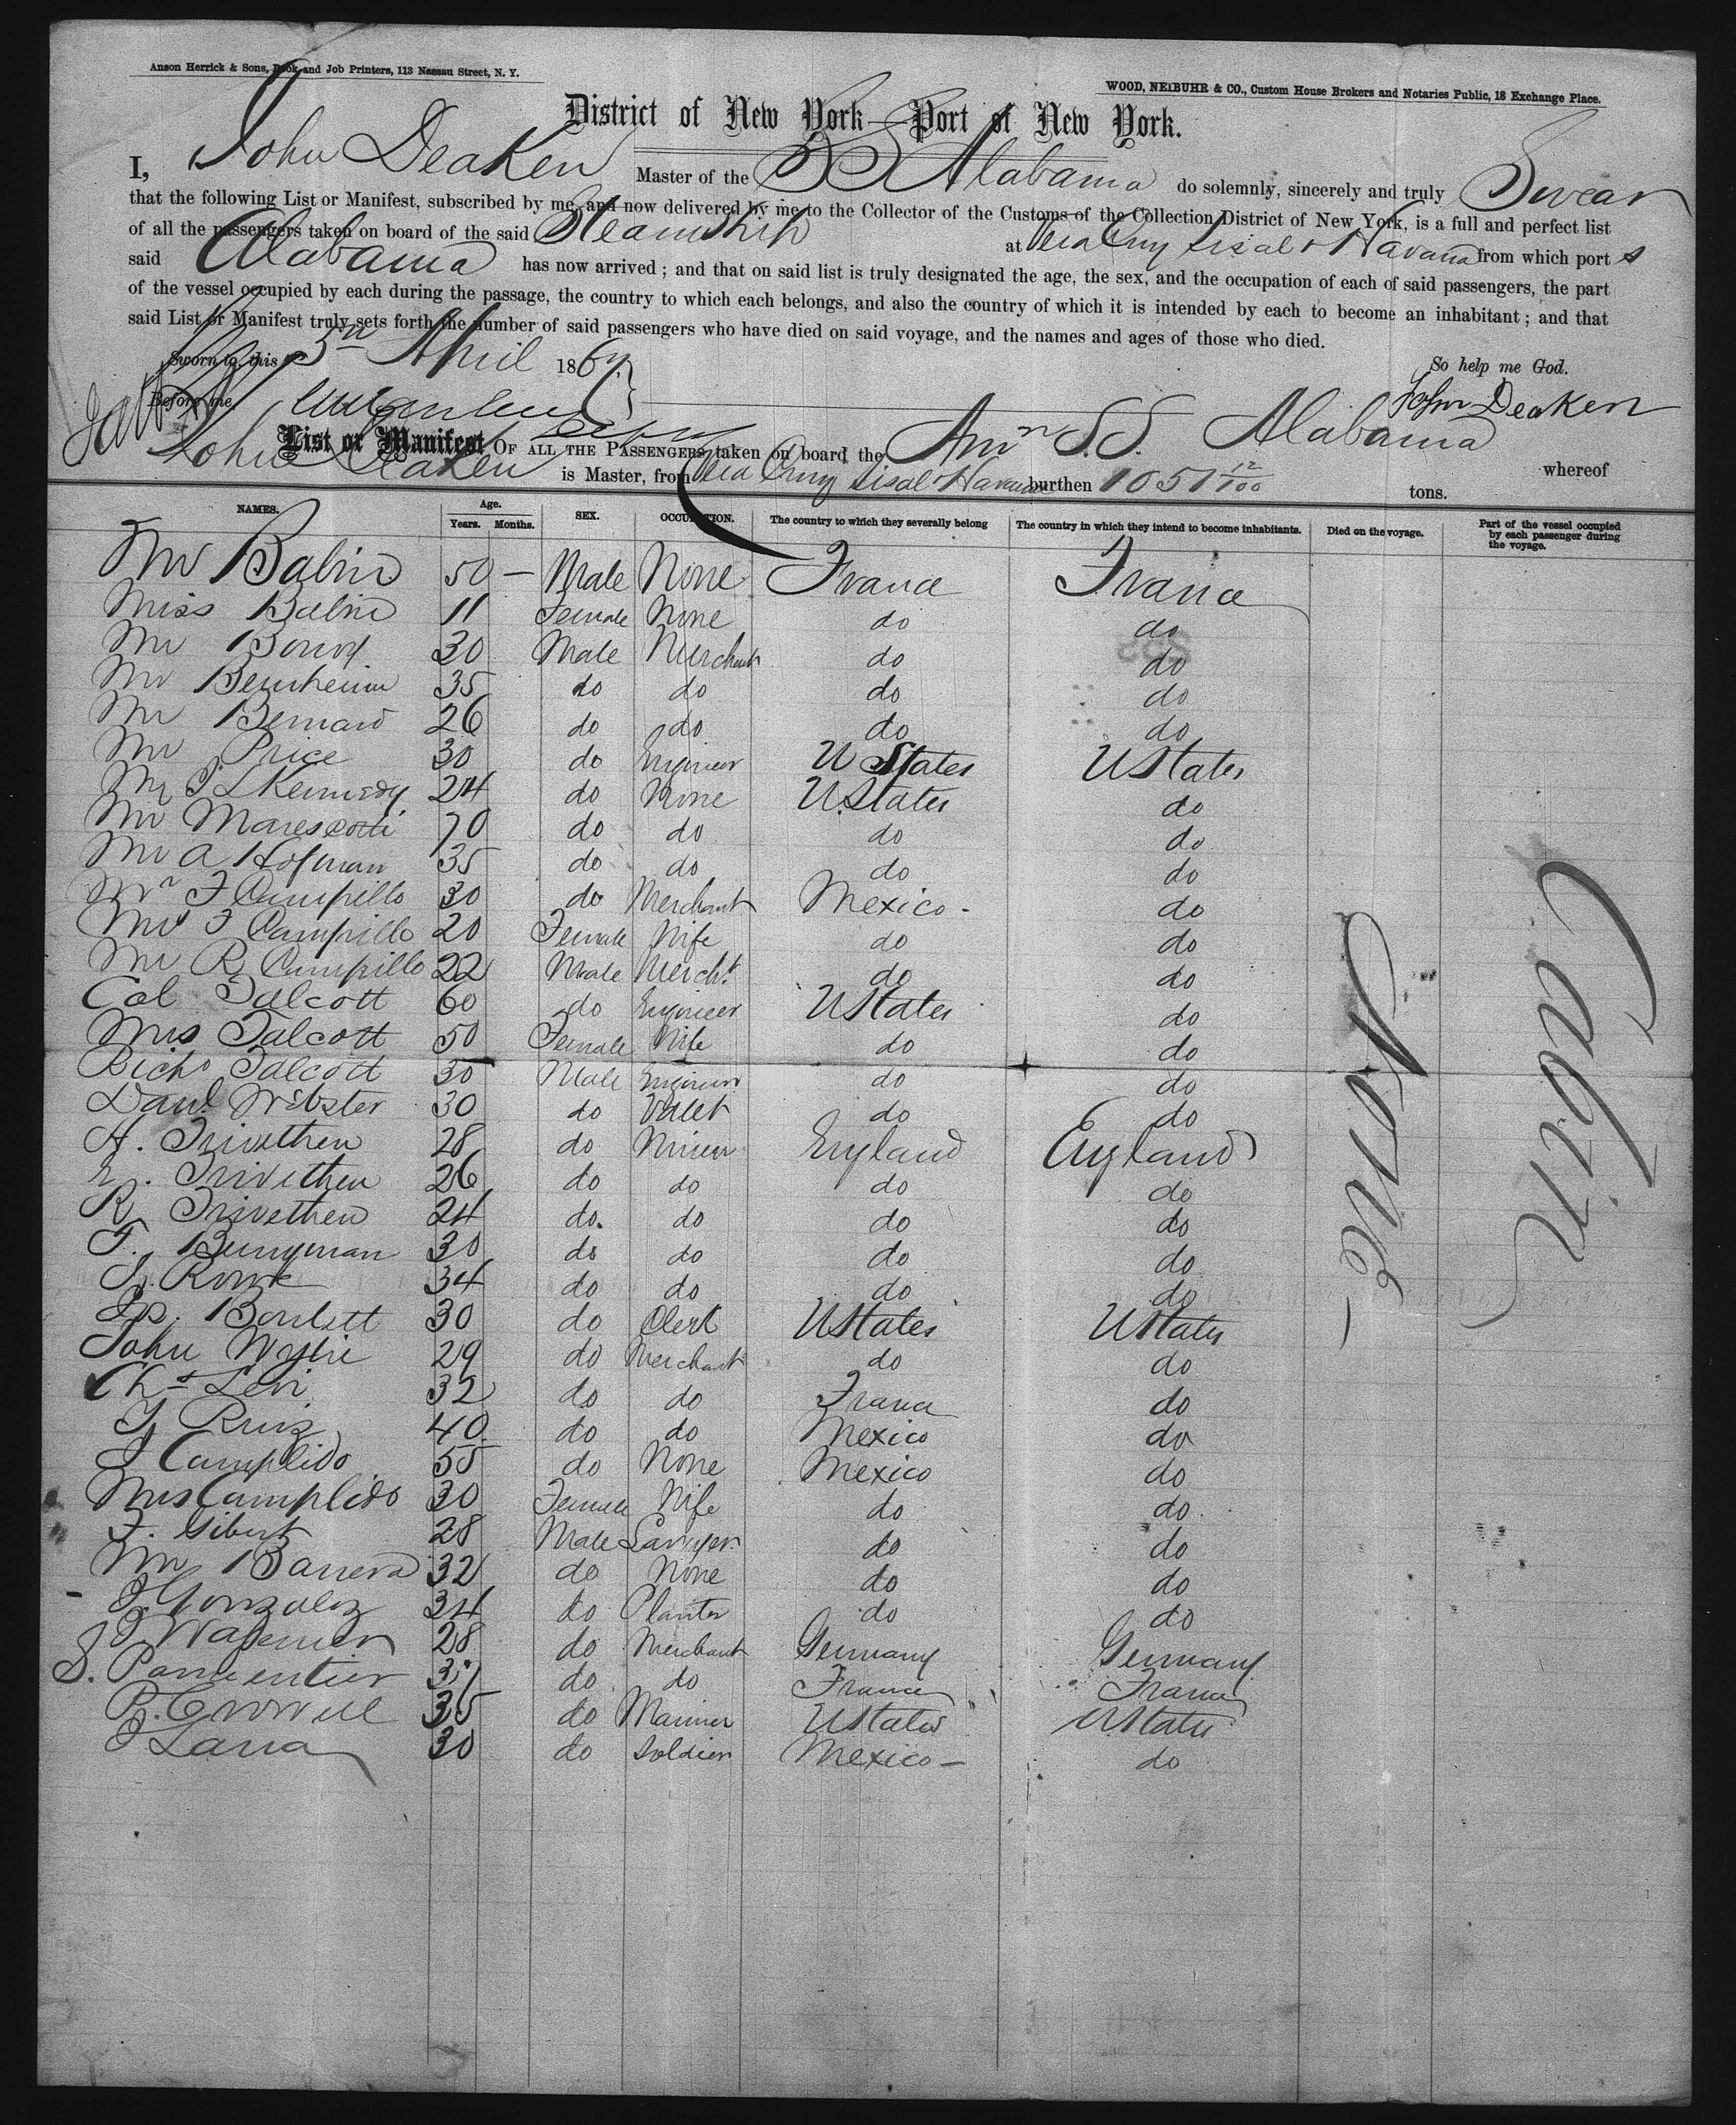 Anson Herrick & Sons, Book and Job Printers, 113 Nassau Street, N. Y.
WOOD, NEIBUHR & CO., Custom House Brokers and Notaries Public, 18 Exchange Place.
District of New York—Port of New York.
I, John Deaken Master of the SS Alabama do solemnly, sincerely and truly Swear
that the following List or Manifest, subscribed by me, and now delivered by me to the Collector of the Customs of the Collection District of New York, is a full and perfect list
of all the passengers taken on board of the said Steamship at Vera Cruz Sisal & Havana from which port s
said Alabama has now arrived ; and that on said list is truly designated the age, the sex, and the occupation of each of said passengers, the part
of the vessel occupied by each during the passage, the country to which each belongs, and also the country of which it is intended by each to become an inhabitant ; and that
said List or Manifest truly sets forth the number of said passengers who have died on said voyage, and the names and ages of those who died.
Sworn to, this April 1867 So help me God.
Before me, John Deaken
List or Manifest OF ALL THE PASSENGERS taken on board the Amn S.S. Alabama whereof
John Deaken is Master, from Vera Cruz Sisal & Havana burthen 1051 12/100 tons.
NAMES. Age. Years. Months. SEX. OCCUPATION. The country to which they severally belong The country in which they intend to become inhabitants. Died on the voyage. Part of the vessel occupied by each passenger during the voyage.
Mr Babin 50 — Male None France France
Miss Babin 11 Female None do do
Mr 30 Male Merchant do do
Mr Bernheim 35 do do do do
Mr Bernard 26 do do do do
Mr Price 30 do Engineer U States U States
Mr Kennedy 24 do None U States do
Mr Marescotti 70 do do do do
Mr A Hofman 35 do do do do
Mr F Campillo 30 do Merchant Mexico - do
Mrs F Campillo 20 Female Wife do do
Mr R Campillo 22 Male Mercht do do
Col Talcott 60 do Engineer U States do
Mrs Talcott 50 Female Wife do do
Richd Talcott 30 Male Engineer do do
Danl Webster 30 do Valet do do
A. Trivethen 28 do Miner England England
Trivethen 26 do do do do
R Trivethen 24 do. do do do
F. Bunyman 30 do do do do
Rowe 34 do do do do
Bartlett 30 do Clerk U States U States
John Wylie 29 do Merchant do do
Chs Levi 32 do do France do
Ruiz 40 do do Mexico do
J Camplido 55 do None Mexico do
Mrs Camplido 30 Female Wife do do
F. Gibert 28 Male Lawyer do do
Mr Barrera 32 do None do do
J. Gonzalez 34 do Planter do do
J Wagener 28 do Merchant Germany Germany
S. Parmentier do do France France
P. Crowell 35 do Mariner U States U States
J Lara 30 do Soldier Mexico — do
None —
Cabin